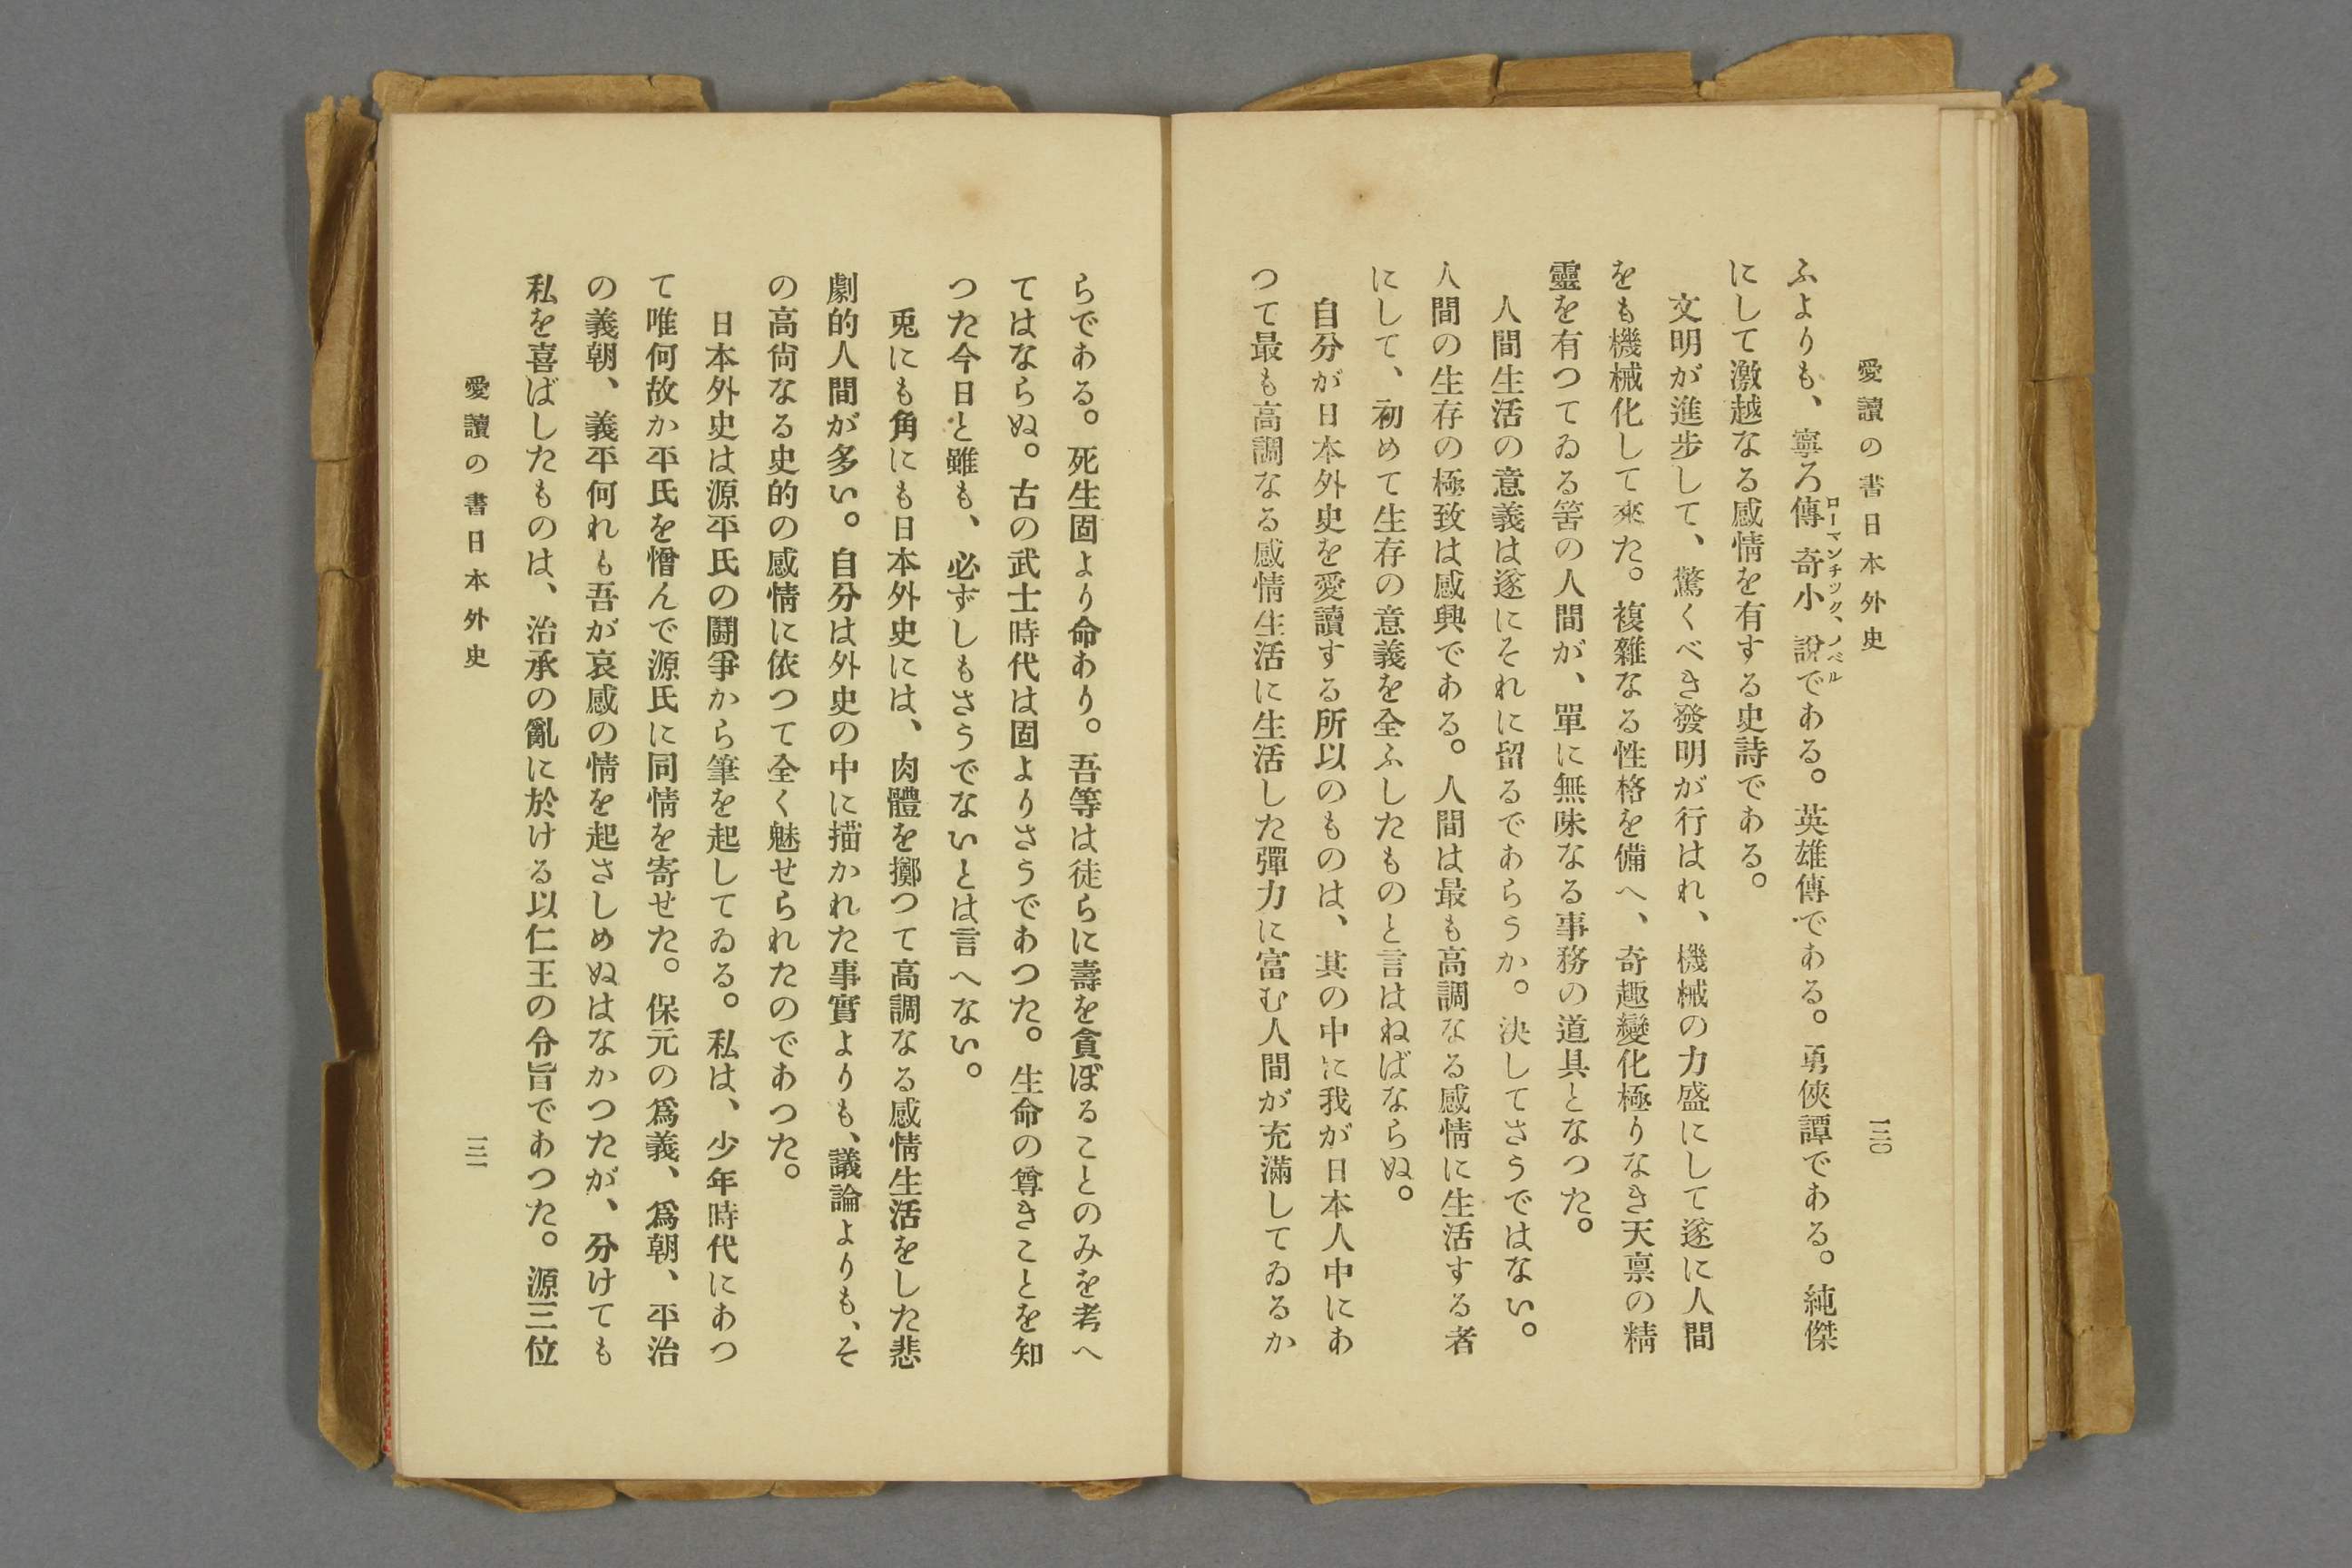 愛讀の書日本外史
一三〇
ふよりも、寧ろ傳奇小說である。英雄傳である。勇俠譚である。純傑
ローマンチック、ノベル
にして激越なる感情を有する史詩である。
文明が進步して、驚くべき發明が行はれ、機械の力盛にして遂に人間
をも機械化して來た。複雜なる性格を備へ、奇趣變化極りなき天禀の精
靈を有つてゐる筈の人間が、單に無味なる事務の道具となつた。
人間生活の意義は遂にそれに留るであらうか。決してさうではない。
人間の生存の極致は感興である。人間は最も高調なる感情に生活する者
にして、初めて生存の意義を全ふしたものと言はねばならぬ。
自分が日本外史を愛讀する所以のものは、其の中に我が日本人中にあ
つて最も高調なる感情生活に生活した彈力に富む人間が充滿してゐるか
らである。死生固より命あり。吾等は徒らに壽を貪ぼることのみを考へ
てはならぬ。古の武士時代は固よりさうであつた。生命の尊きことを知
つた今日と雖も、必ずしもさうでないとは言へない。
兎にも角にも日本外史には、肉體を擲つて高調なる感情生活をした悲
劇的人間が多い。自分は外史の中に描かれた事實よりも、議論よりも、そ
の高尙なる史的の感情に依つて全く魅せられたのであつた。
日本外史は源平氏の鬪爭から筆を起してゐる。私は、少年時代にあつ
て唯何故か平氏を憎んで源氏に同情を寄せた。保元の爲義、爲朝、平治
の義朝、義平何れも吾が哀感の情を起さしめぬはなかつたが、分けても
私を喜ばしたものは、治承の亂に於ける以仁王の令旨であつた。源三位
愛讀の書日本外史
一三一